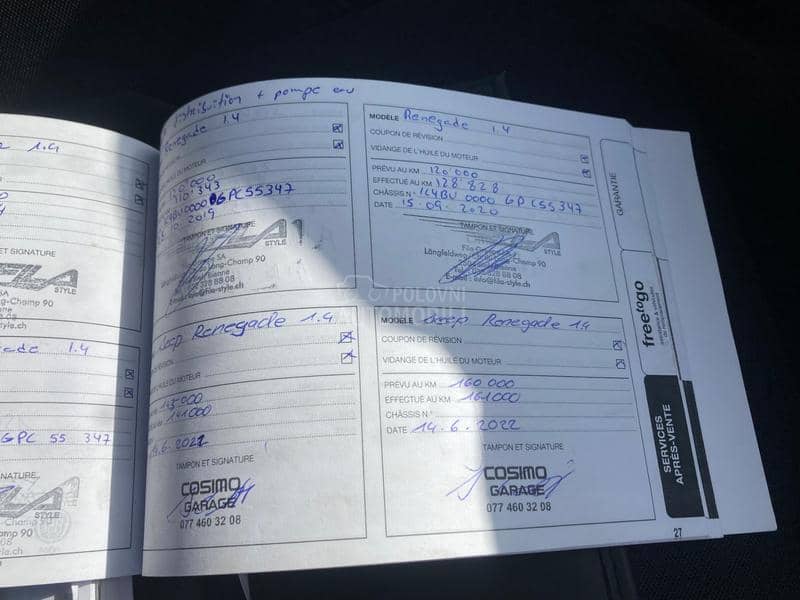 1.4
ET SIGNATURE
FILA
STYLE
Champ 90
-style.ch
1.4
GPC 55 347
NATURE
STYLE
Champ 90
le.ch
distribution + pompe eau
Renegade 1.4
DU MOTEUR
GPC55347
10 2019
TAMPON ET SIGNATURE
FILA
STYLE
SA
Long-Champ 90
328 88 08
info@fila-style.ch
MODÈLE Renegade 1.4
COUPON DE RÉVISION
VIDANGE DE L'HUILE DU MOTEUR
PRÉVU AU KM 120'000
EFFECTUÉ AU KM 128 828
CHÂSSIS N° 1C4BU 0000 GPC55347
DATE 15.09.2020
TAMPON ET SIGNATURE
STYLE
Längfeldweg
Champ 90
Bienne
328 88 08
E-mail: info@fila-style.ch
POLOVNI
Jeep Renegade 1.4
L'HUILE DU MOTEUR
145 000
141 000
TAMPON ET SIGNATURE
COSIMO
GARAGE
077 460 32 08
MODÈLE Jeep Renegade 1.4
COUPON DE RÉVISION
VIDANGE DE L'HUILE DU MOTEUR
PRÉVU AU KM 160 000
EFFECTUÉ AU KM 161000
CHÂSSIS N°
DATE 14.6.2022
TAMPON ET SIGNATURE
COSIMO
GARAGE
077 460 32 08
GARANTIE
freetogo
SERVICES
APRÈS-VENTE
27